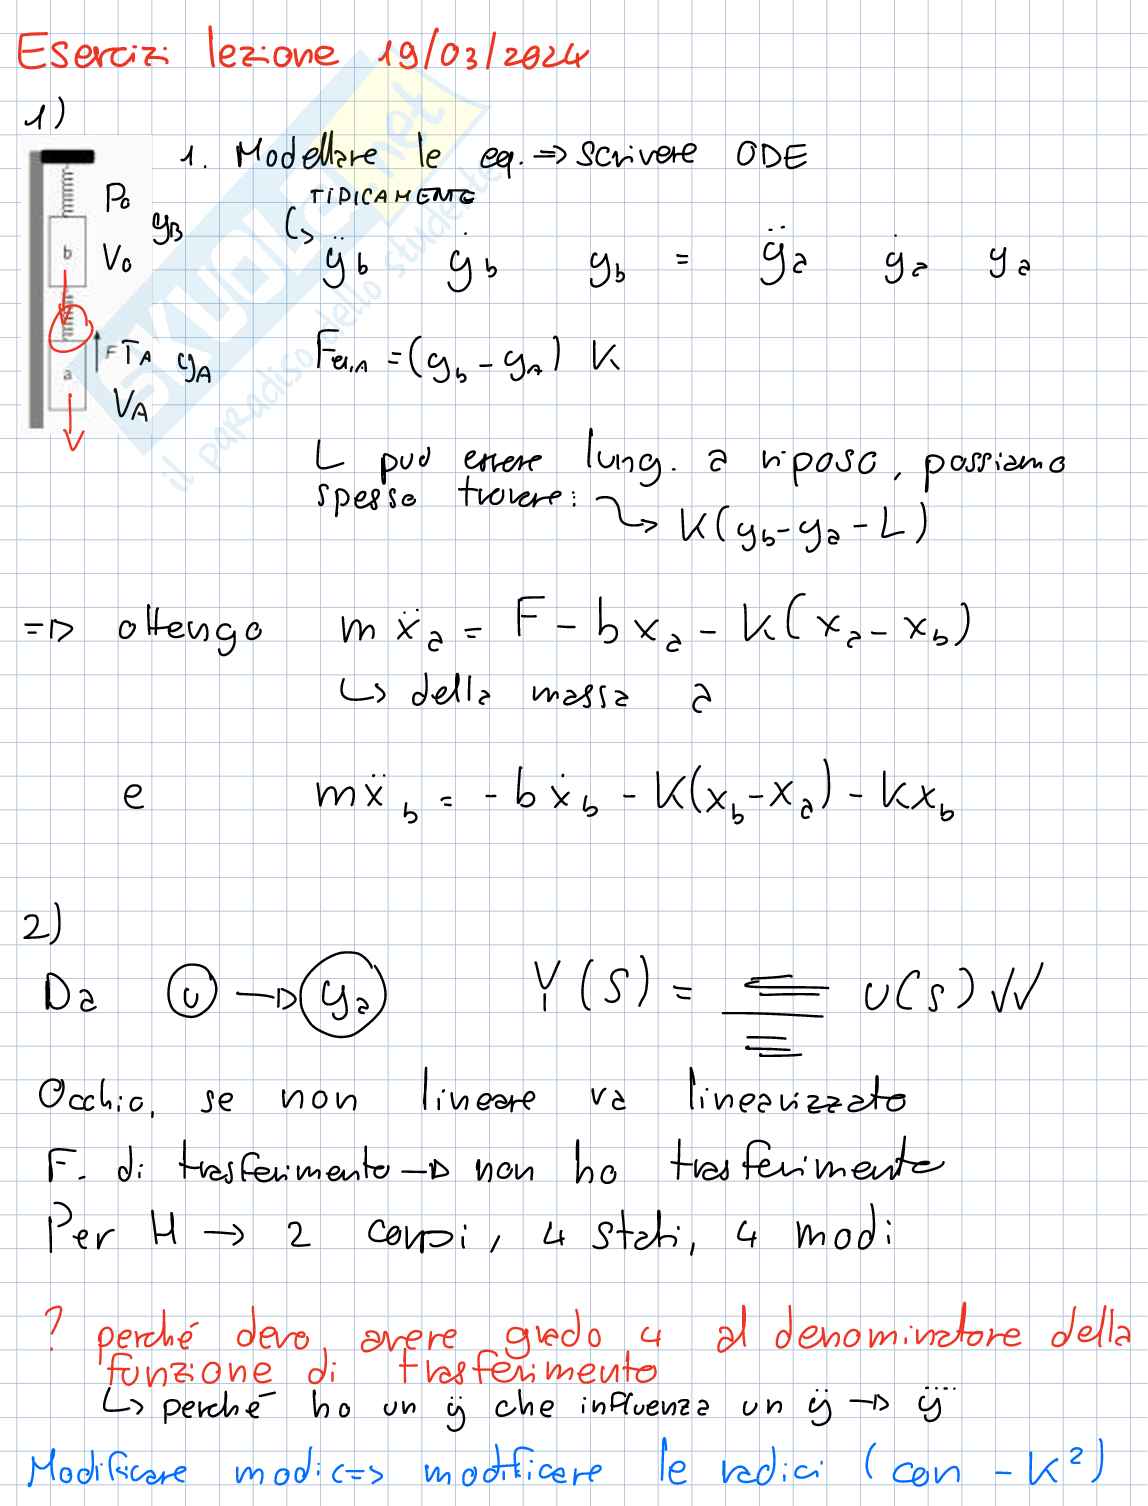 Esercizi lezione 19/03/2024
1)
1. Modellare le eq. => scrivere ODE
TIPICAMENTE
P₀
y_B
b
V₀
ÿ_b ẏ_b y_b = ÿ_a ẏ_a y_a
F T_A y_A
a
V_A
F_el,A = (y_b - y_A) K
L può essere lung. a riposo, possiamo
spesso trovare: → K(y_b - y_a - L)
=> ottengo m ẍ_a = F - b x_a - K(x_a - x_b)
↳ della massa a
e m ẍ_b = - b ẋ_b - K(x_b - x_a) - K x_b
2)
Da u → y_a Y(S) = U(s) √√
Occhio, se non lineare va linearizzato
F. di trasferimento → non ho trasferimento
Per H → 2 corpi, 4 stati, 4 modi
? perché devo avere grado 4 al denominatore della
funzione di trasferimento
↳ perché ho un ÿ che influenza un ÿ → y⃜
Modificare modi <=> modificare le radici (con - K²)
SKUOLA.net
il paradiso dello studente